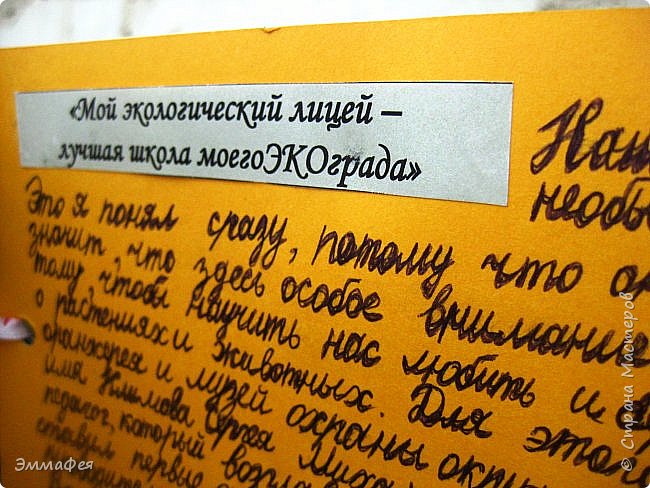 «Мой экологический лицей –
лучшая школа моегоЭКОграда»
необы
Это я понял сразу, потому что
значит, что здесь особое внимание
тому, чтобы научить нас любить и
о растениях и животных. Для этого
оранжерея и музей охраны
имя Климова Сергея
педагог, который
ставил первые
© Страна Мастеров
ЭммаФея